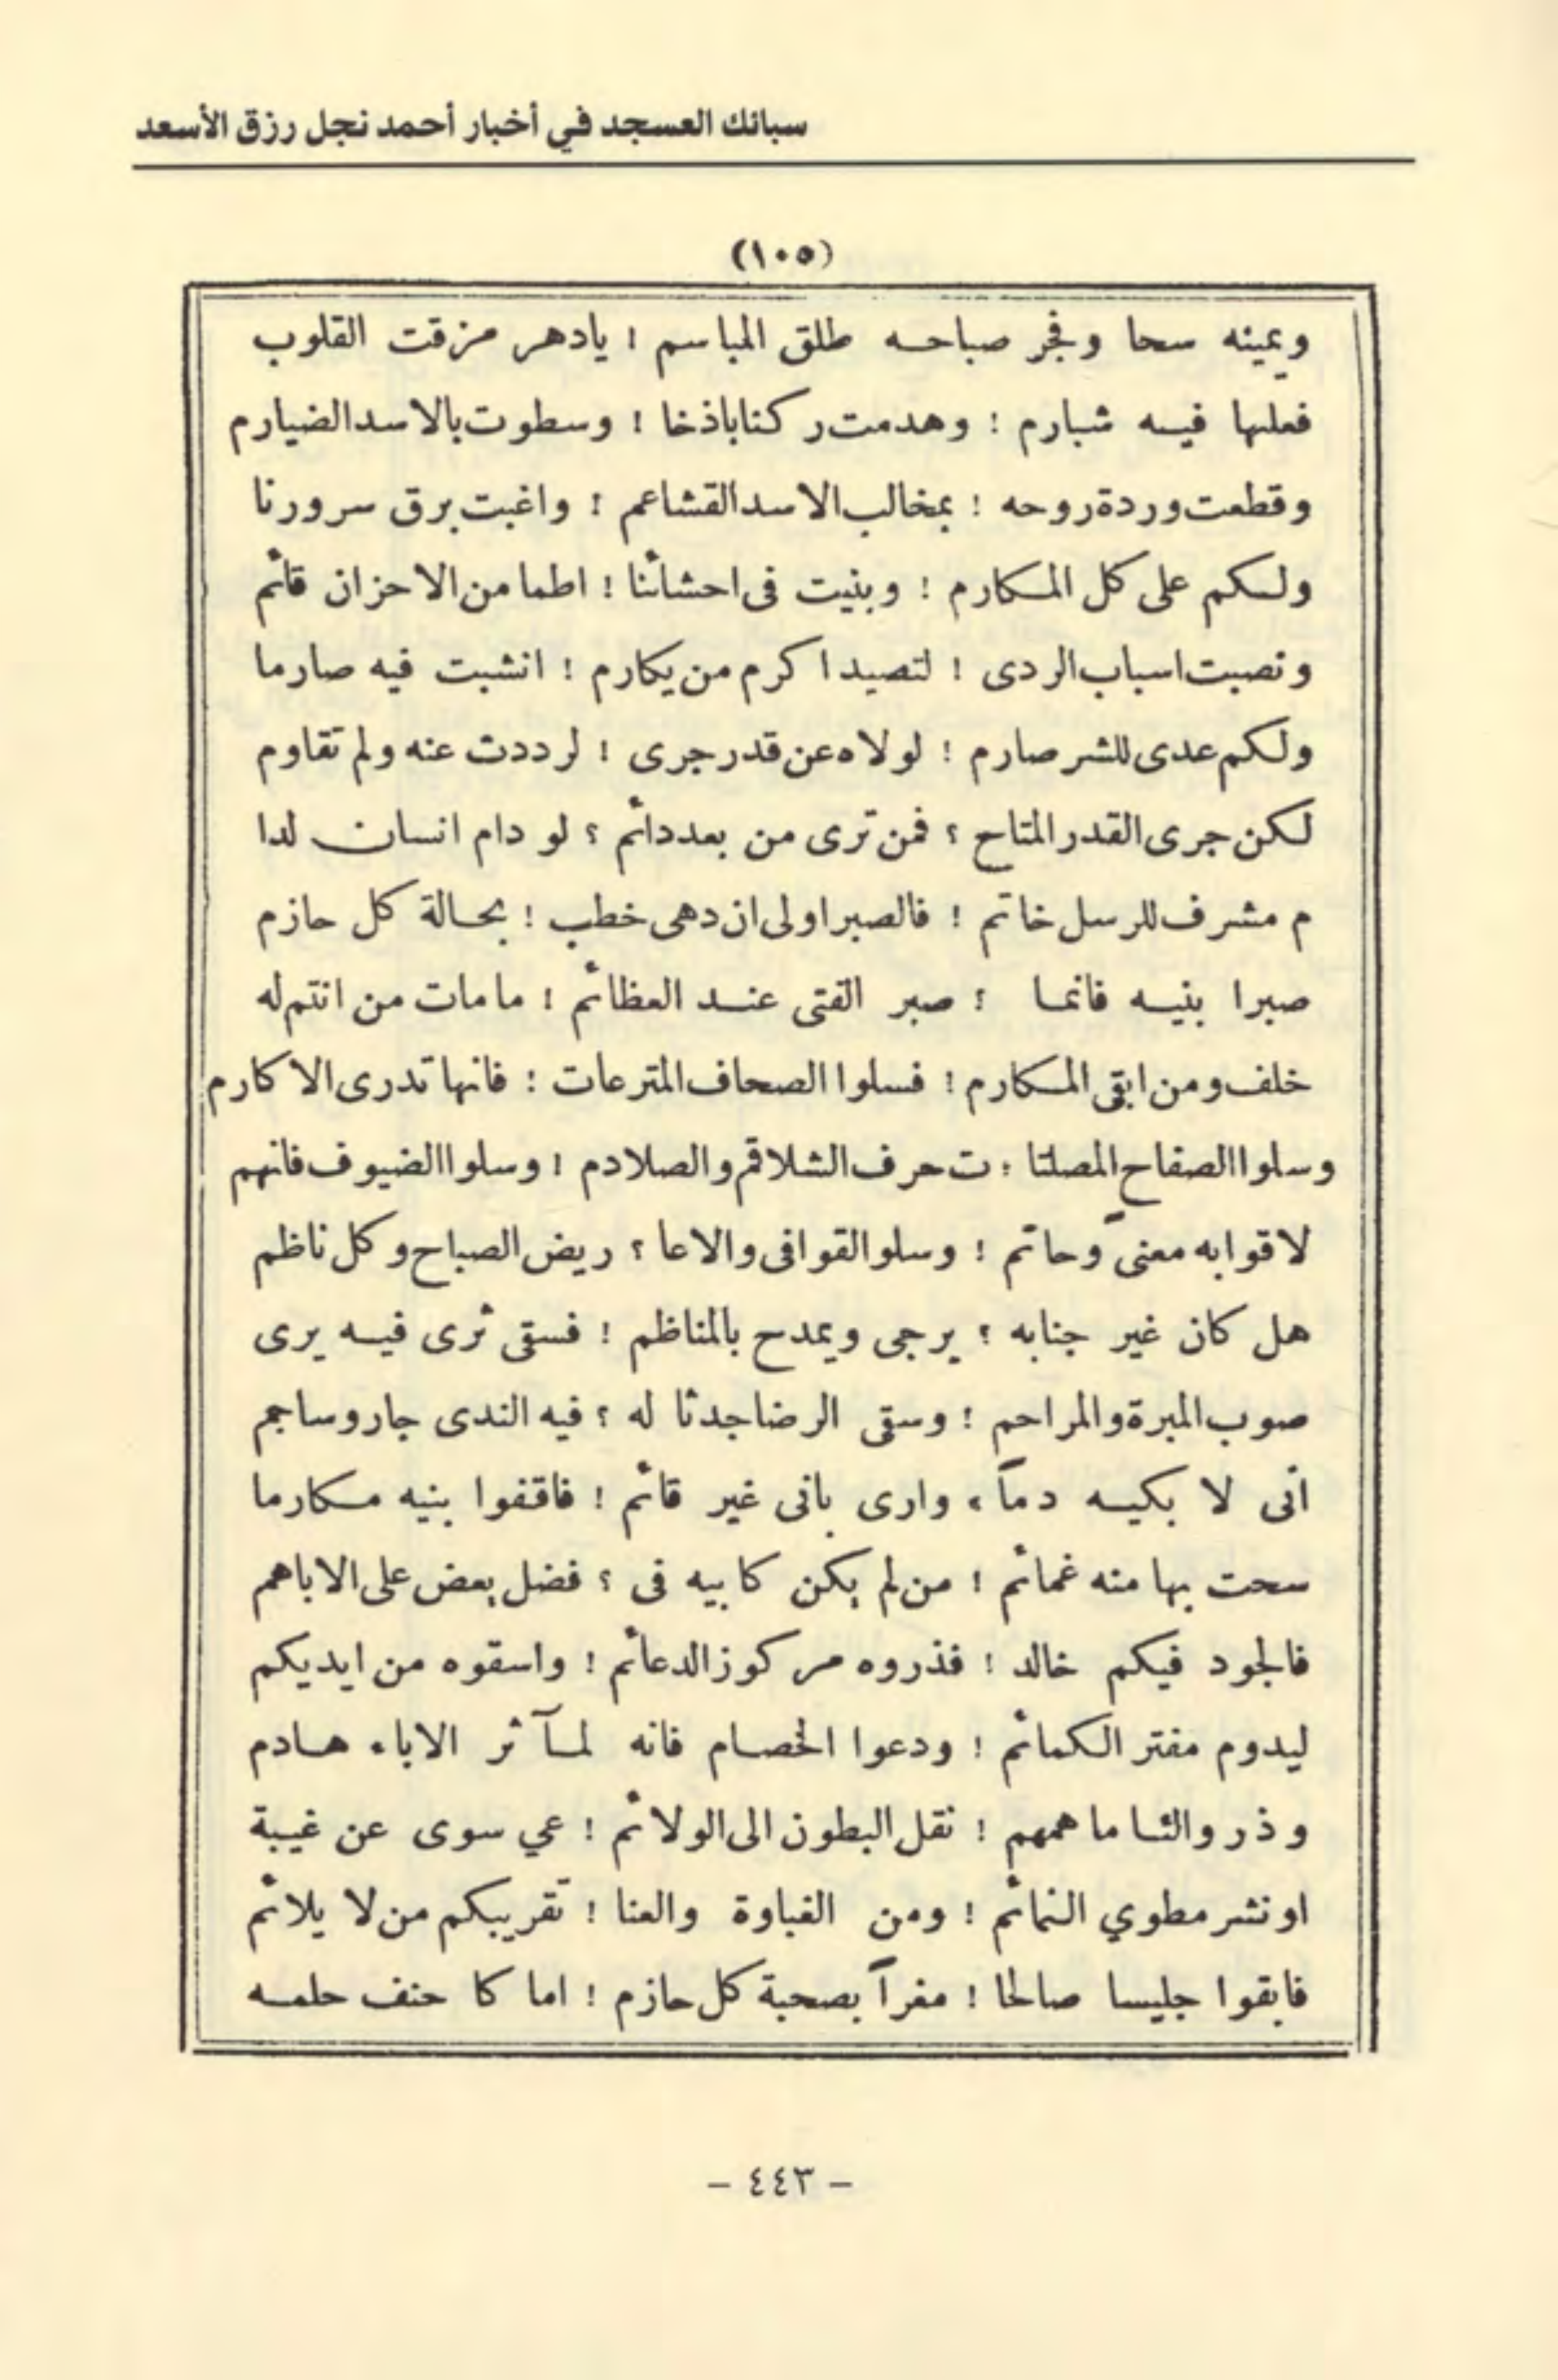 سبائك العسجد في أخبار أحمد نجل رزق الأسعد
(١٠٥)
ويمينه سحا وفجر صباحه طلق المباسم ! يادهر مزقت القلوب
فعلىها فيه شبارم ! وهدمت ركنا باذخا ! وسطوت بالاسد الضيارم
وقطعت وردة روحه ! بمخالب الاسد القشاعم ! واغبت برق سرورنا
ولكم على كل المكارم ! وبنيت فى احشائنا ! اطما من الاحزان قائم
ونصبت اسباب الردى ! لتصيد اكرم من يكارم ! انشبت فيه صارما
ولكم عدى للشر صارم ! لولاه عن قدر جرى ! لرددت عنه ولم تقاوم
لكن جرى القدر المتاح ؟ فمن ترى من بعد دائم ؟ لو دام انسان لدا
م مشرف للرسل خاتم ! فالصبر اولى ان دهى خطب ! بحالة كل حازم
صبرا بنيه فانما ؟ صبر الفتى عند العظائم ! مامات من انتم له
خلف ومن ابقى المكارم ! فسلوا الصحاف المترعات ! فانها تدرى الاكارم
وسلوا الصفاح المصلتا ! ت حرف الشلاقم والصلادم ! وسلوا الضيوف فانهم
لاقوا به معنىً وحاتم ! وسلو القوافى والاعا ؟ ريض الصباح وكل ناظم
هل كان غير جنابه ؟ يرجى ويمدح بالمناظم ! فسقى ثرى فيه يرى
صوب المبرة والمراحم ! وسقى الرضا جدثا له ؟ فيه الندى جار وساجم
انى لا بكيه دماً ، وارى بانى غير قائم ! فاقفوا بنيه مكارما
سحت بها منه غمائم ! من لم يكن كابيه فى ؟ فضل بعض على الاباهم
فالجود فيكم خالد ! فذروه مركوز الدعائم ! واسقوه من ايديكم
ليدوم مفتر الكمائم ! ودعوا الخصام فانه لمآثر الاباء هادم
وذروالئا ما همهم ! نقل البطون الى الولائم ! عي سوى عن غيبة
او نشر مطوي النمائم ! ومن الغباوة والعنا ! تقريبكم من لا يلائم
فابقوا جليسا صالحا ! مغراً بصحبة كل حازم ! اما كا حنف حلمه
- ٤٤٣ -